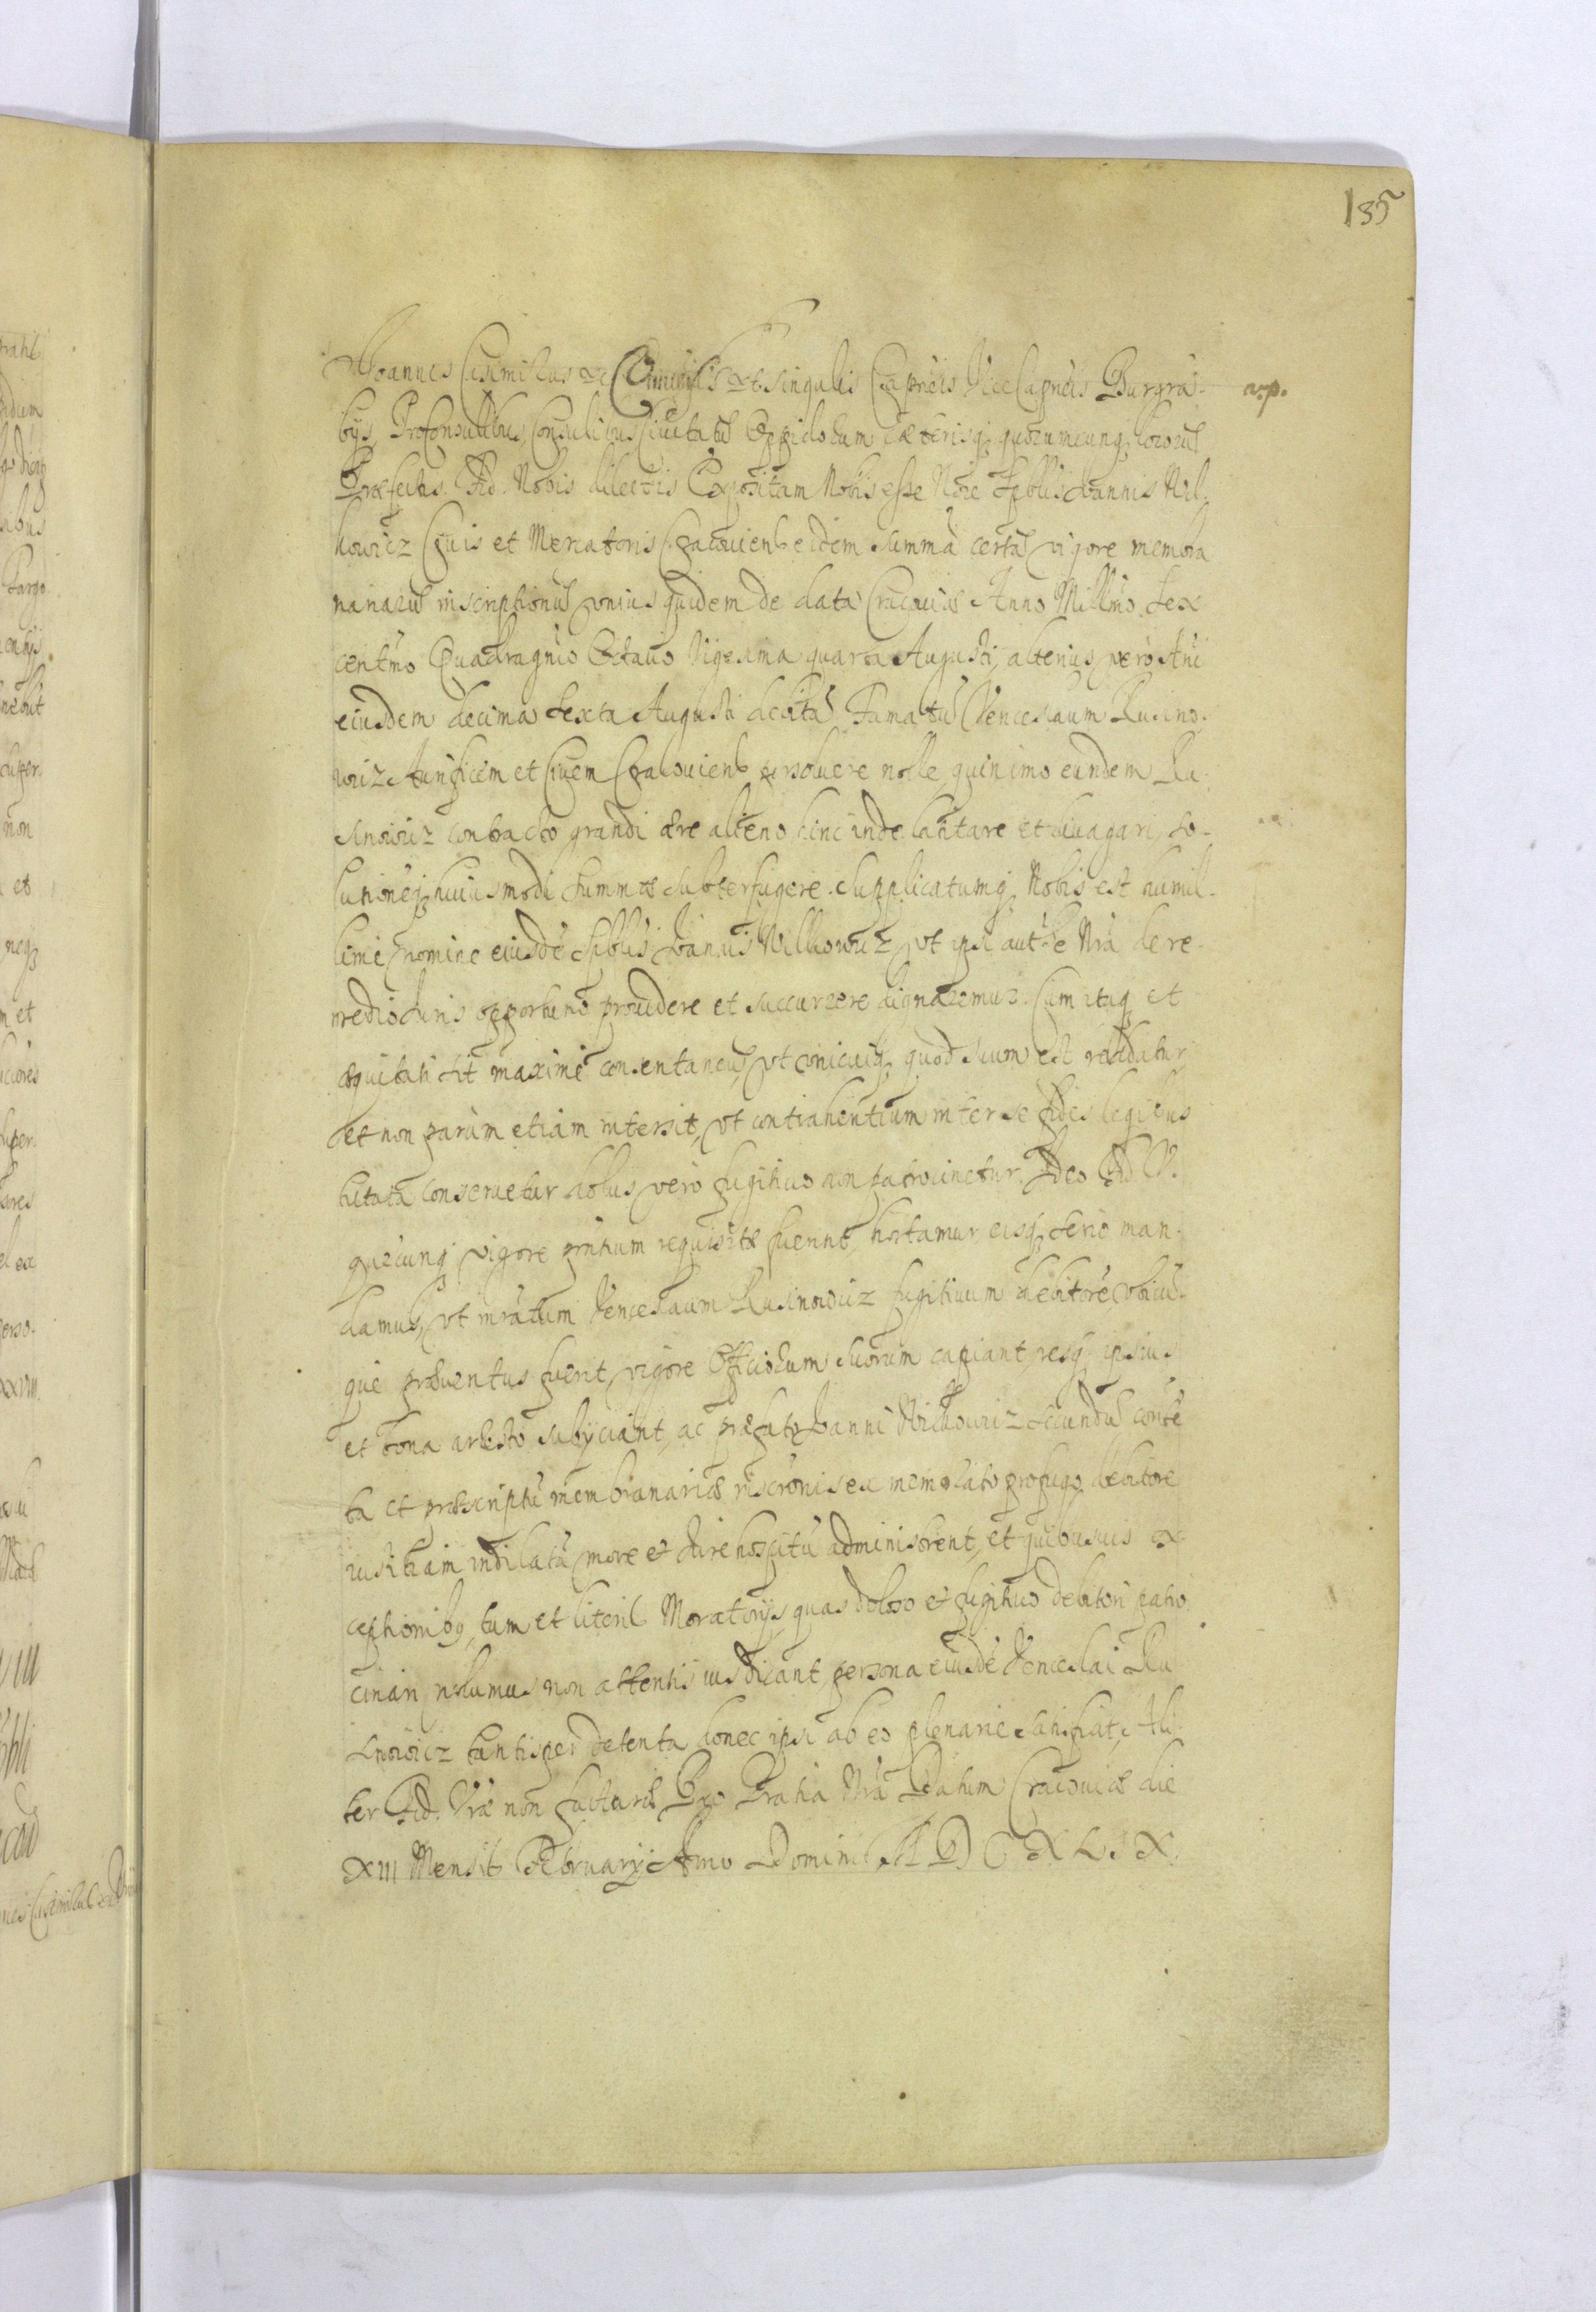 135
Joannes Casimirus etc Omnibus et singulis Capneis ViceCapneis Burgra-
a.p.
bijs Proconsulibus, Consulibus Ciuitatũ Oppidorum cæterisq; quorumcunq; locorũ
Præfectis. Fid. Nobis dilectis Expositam Nobis esse Nõie Spblis Joannis Wil-
kowicz Ciuis et Mercatoris Cracouiens eidem summã certã vigore membra
nanarũ inscriptionũ vnius quidem de data Cracouiæ Anno Millmo Sex
centmo Quadragmo Octauo Vigesima quarta Augusti, alterius vero Ani
eiusdem decima sexta Augusti debitã Famatũ Venceslaum Rusino-
wicz Aurificem et Ciuem Cracouiens persoluere nolle, quinimo eundem Ru-
sinowicz contracto grandi ære alieno hinc inde latitare et diuagari, so-
lutionẽq; huiusmodi summæ subterfugere. Supplicatumq; Nobis est humil-
limè nomine eiusdẽ Spblis Joannis Wilkowicz vt ipsi autte Nrã de re-
medio Iuris opportuno prouidere et succurrere dignaremur. Cum itaq; et
æquitati sit maximè consentaneũ, vt vnicuiq; quod suum est reddatur,
et non parùm etiam intersit, vt contrahentium inter se fides legibus
tutata conseruetur dolus verò fugitiuo non patrocinetur. Ideo Fid. V.
quæcunq; vigore pntium requisitæ fuerint, hortamur, eisq; serio man-
damus, vt mratum Venceslaum Rusinowicz fugitiuum debitorẽ vbicũ-
que præuentus fuerit, vigore Officiorum suorum capiant, resq; ipsius
et bona aresto subijciant, ac præfato Joanni Wilkowicz secundũ contẽ
ta et præscriptũ membranariæ inscrõnis ex memorato profugo debitore
iustitiam indilatã more et iure hospitũ administrent, et quibusuis ex-
ceptionibq, tum et literis Moratorijs, quas doloso et fugitiuo debitori patro
cinari nolumus non attentis ius dicant, persona eiusdẽ Venceslai Ru
sinowicz tantisper detenta donec ipsi ab eo plenariè satisfiat. Ali
ter Fid. Vræ non facturæ Pro Gratia Nrã Datum Cracouiæ die
XIII Mensis February Anno Domini M D C X L I X.